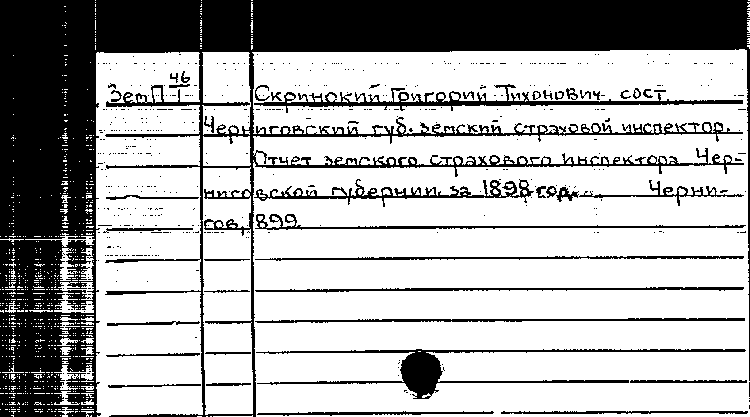 ЗемП 46/I Скринокий, Григорий Тихонович, сост.
Черниговский губ. земский страховой инспектор.
Отчет земского страхового инспектора Чер-
ниговской губернии за 1898 год... Черни-
гов, 1899.